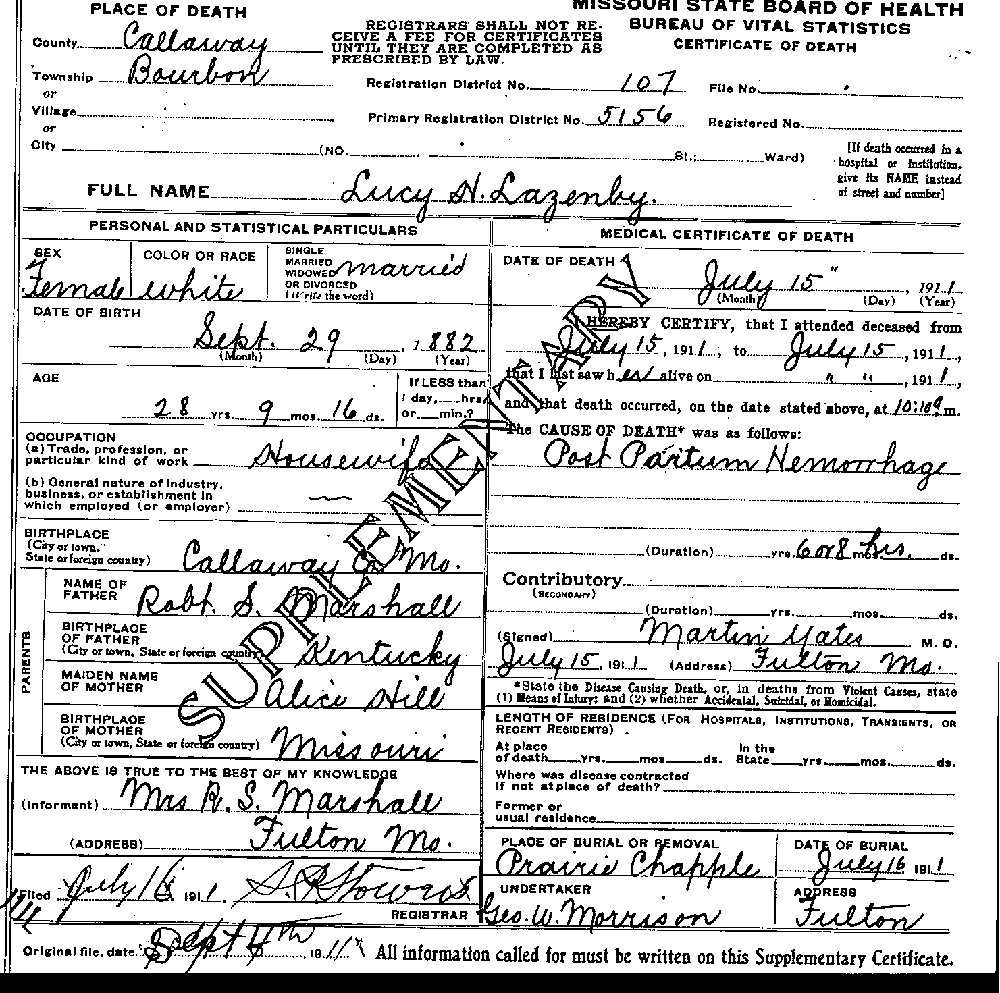 PLACE OF DEATH
MISSOURI STATE BOARD OF HEALTH
BUREAU OF VITAL STATISTICS
CERTIFICATE OF DEATH
REGISTRARS SHALL NOT RE-
CEIVE A FEE FOR CERTIFICATES
UNTIL THEY ARE COMPLETED AS
PRESCRIBED BY LAW.
County Callaway
Township Bourbon
or
Village
or
City (NO. St.; Ward)
Registration District No. 107 File No.
Primary Registration District No. 5156 Registered No.
[If death occurred in a
hospital or institution,
give its NAME instead
of street and number]
FULL NAME Lucy H. Lazenby.
PERSONAL AND STATISTICAL PARTICULARS
SEX
Female
COLOR OR RACE
white
SINGLE
MARRIED
WIDOWED
OR DIVORCED
(Write the word)
married
DATE OF BIRTH
Sept. 29, 1882
(Month) (Day) (Year)
AGE
28 yrs. 9 mos. 16 ds.
If LESS than
1 day, hrs.
or min.?
OCCUPATION
(a) Trade, profession, or
particular kind of work Housewife
(b) General nature of industry,
business, or establishment in
which employed (or employer)
BIRTHPLACE
(City or town,
State or foreign country) Callaway Co Mo.
PARENTS
NAME OF
FATHER Robt. S. Marshall
BIRTHPLACE
OF FATHER
(City or town, State or foreign country) Kentucky
MAIDEN NAME
OF MOTHER Alice Hill
BIRTHPLACE
OF MOTHER
(City or town, State or foreign country) Missouri
THE ABOVE IS TRUE TO THE BEST OF MY KNOWLEDGE
(Informant) Mrs R. S. Marshall
(ADDRESS) Fulton Mo.
Filed July 16 1911.
REGISTRAR
MEDICAL CERTIFICATE OF DEATH
DATE OF DEATH
July 15", 1911
(Month) (Day) (Year)
I HEREBY CERTIFY, that I attended deceased from
July 15, 1911, to July 15, 1911,
that I last saw her alive on " ", 1911,
and that death occurred, on the date stated above, at m.
The CAUSE OF DEATH* was as follows:
Post Partum Hemorrhage
(Duration) yrs. 6 or 8 mos. hrs. ds.
Contributory
(SECONDARY)
(Duration) yrs. mos. ds.
(Signed) Martin Yates M. D.
July 15, 1911 (Address) Fulton Mo.
*State the Disease Causing Death, or, in deaths from Violent Causes, state
(1) Means of Injury; and (2) whether Accidental, Suicidal, or Homicidal.
LENGTH OF RESIDENCE (FOR HOSPITALS, INSTITUTIONS, TRANSIENTS, OR
RECENT RESIDENTS).
At place
of death yrs. mos. ds.
In the
State yrs. mos. ds.
Where was disease contracted
if not at place of death?
Former or
usual residence
PLACE OF BURIAL OR REMOVAL
Prairie Chapple
DATE OF BURIAL
July 16 1911
UNDERTAKER
Geo. W. Morrison
ADDRESS
Fulton
Original file, date Sept 4th 1911 All information called for must be written on this Supplementary Certificate.
SUPPLEMENTARY